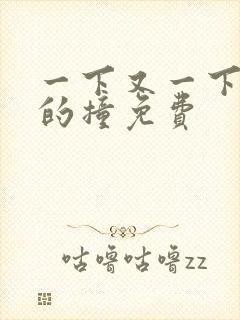 一下又一下
的撞免费
咕噜咕噜zz